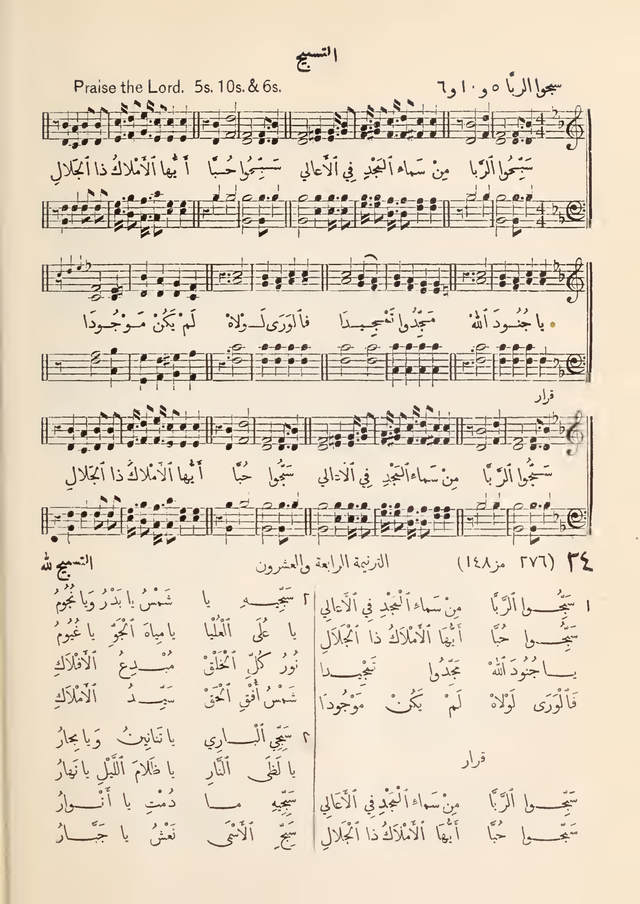 التسبيح
سبحوا الربَّا ٥ و ١٠ و ٦
Praise the Lord. 5s. 10s. & 6s.
سَبِّحُوا الرَّبَّا مِنْ سَمَاءِ الْمَجْدِ فِي الْأَعَالِي سَبِّحُوا حُبًّا أَيُّهَا الْأَمْلَاكُ ذَا الْجَلَالِ
يا جُنُودَ اللهْ مَجِّدُوا تَمْجِيدَا فَالْوَرَى لَوْلَاهْ لَمْ يَكُنْ مَوْجُودَا
قرار
سَبِّحُوا الرَّبَّا مِنْ سَمَاءِ الْمَجْدِ فِي الْأَعَالِي سَبِّحُوا حُبًّا أَيُّهَا الْأَمْلَاكُ ذَا الْجَلَالِ
٢٤ (٢٧٦ مز ١٤٨) الترنيمة الرابعة والعشرون التسبيح لله
١ سَبِّحُوا الرَّبَّا مِنْ سَمَاءِ الْمَجْدِ فِي الْأَعَالِي
سَبِّحُوا حُبًّا أَيُّهَا الْأَمْلَاكُ ذَا الْجَلَالِ
يا جُنُودَ اللهْ مَجِّدُوا تَمْجِيدَا
فَالْوَرَى لَوْلَاهْ لَمْ يَكُنْ مَوْجُودَا
قرار
سَبِّحُوا الرَّبَّا مِنْ سَمَاءِ الْمَجْدِ فِي الْأَعَالِي
سَبِّحُوا حُبًّا أَيُّهَا الْأَمْلَاكُ ذَا الْجَلَالِ
٢ سَبِّحِيهِ يا شَمْسُ يا بَدْرُ وَيا نُجُومُ
يا عُلَى الْعُلْيَا يا مِيَاهَ الْجَوِّ يا غُيُومُ
نُورُ كُلِّ الْخَلْقْ مُبْدِعُ الْأَفْلَاكِ
شَمْسُ أُفْقِ الْحَقْ سَيِّدُ الْأَمْلَاكِ
٣ سَبِّحِي الْبَارِي يا تَنَانِينُ وَيا بِحَارُ
يا لَظَى النَّارِ يا ظَلَامَ اللَّيْلِ يا نَهَارُ
سَبِّحِيهِ ما دُمْتِ يا أَنْوَارُ
سَبِّحِ الْأَسْمَى نَعْشُ يا جَبَّارُ